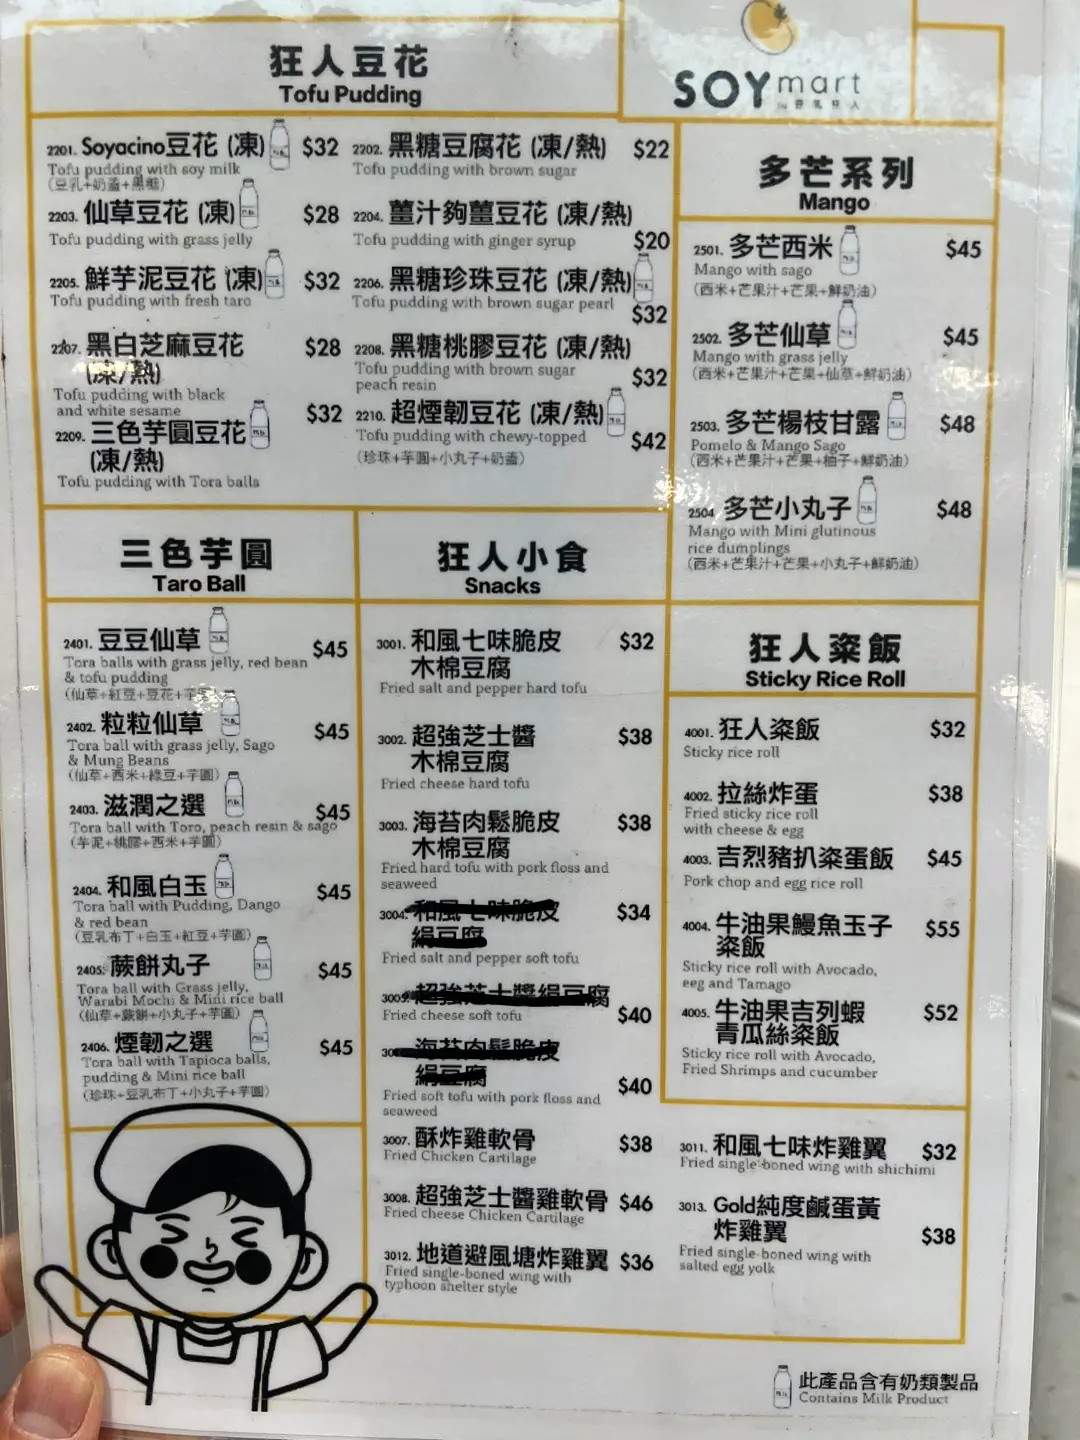 狂人豆花
Tofu Pudding
SOYmart
by 豆乳狂人
2201. Soyacino豆花 (凍) $32
Tofu pudding with soy milk
(豆乳+奶蓋+黑糖)
2202. 黑糖豆腐花 (凍/熱) $22
Tofu pudding with brown sugar
2203. 仙草豆花 (凍) $28
Tofu pudding with grass jelly
2204. 薑汁夠薑豆花 (凍/熱)
Tofu pudding with ginger syrup $20
2205. 鮮芋泥豆花 (凍) $32
Tofu pudding with fresh taro
2206. 黑糖珍珠豆花 (凍/熱)
Tofu pudding with brown sugar pearl
$32
2207. 黑白芝麻豆花 $28
(凍/熱)
Tofu pudding with black
and white sesame
2208. 黑糖桃膠豆花 (凍/熱)
Tofu pudding with brown sugar
peach resin $32
2209. 三色芋圓豆花 $32
(凍/熱)
Tofu pudding with Tora balls
2210. 超煙韌豆花 (凍/熱)
Tofu pudding with chewy-topped $42
(珍珠+芋圓+小丸子+奶蓋)
多芒系列
Mango
2501. 多芒西米 $45
Mango with sago
(西米+芒果汁+芒果+鮮奶油)
2502. 多芒仙草 $45
Mango with grass jelly
(西米+芒果汁+芒果+仙草+鮮奶油)
2503. 多芒楊枝甘露 $48
Pomelo & Mango Sago
(西米+芒果汁+芒果+柚子+鮮奶油)
2504 多芒小丸子 $48
Mango with Mini glutinous
rice dumplings
(西米+芒果汁+芒果+小丸子+鮮奶油)
三色芋圓
Taro Ball
2401. 豆豆仙草 $45
Tora balls with grass jelly, red bean
& tofu pudding
(仙草+紅豆+豆花+芋
2402. 粒粒仙草 $45
Tora ball with grass jelly, Sago
& Mung Beans
(仙草+西米+綠豆+芋圓)
2403. 滋潤之選 $45
Tora ball with Toro, peach resin & sago
(芋泥+桃膠+西米+芋圓)
2404. 和風白玉 $45
Tora ball with Pudding, Dango
& red bean
(豆乳布丁+白玉+紅豆+芋圓)
2405. 蕨餅丸子 $45
Tora ball with Grass jelly,
Warabi Mochi & Mini rice ball
(仙草+蕨餅+小丸子+芋圓)
2406. 煙韌之選 $45
Tora ball with Tapioca balls,
pudding & Mini rice ball
(珍珠+豆乳布丁+小丸子+芋圓)
狂人小食
Snacks
3001. 和風七味脆皮 $32
木棉豆腐
Fried salt and pepper hard tofu
3002. 超強芝士醬 $38
木棉豆腐
Fried cheese hard tofu
3003. 海苔肉鬆脆皮 $38
木棉豆腐
Fried hard tofu with pork floss and
seaweed
3004. 和風七味脆皮 $34
絹豆腐
Fried salt and pepper soft tofu
3005. 超強芝士醬絹豆腐
Fried cheese soft tofu $40
海苔肉鬆脆皮
絹豆腐 $40
Fried soft tofu with pork floss and
seaweed
3007. 酥炸雞軟骨 $38
Fried Chicken Cartilage
3008. 超強芝士醬雞軟骨 $46
Fried cheese Chicken Cartilage
3012. 地道避風塘炸雞翼 $36
Fried single-boned wing with
typhoon shelter style
狂人粢飯
Sticky Rice Roll
4001. 狂人粢飯 $32
Sticky rice roll
4002. 拉絲炸蛋 $38
Fried sticky rice roll
with cheese & egg
4003. 吉烈豬扒粢蛋飯 $45
Pork chop and egg rice roll
4004. 牛油果鰻魚玉子 $55
粢飯
Sticky rice roll with Avocado,
eeg and Tamago
4005. 牛油果吉列蝦 $52
青瓜絲粢飯
Sticky rice roll with Avocado,
Fried Shrimps and cucumber
3011. 和風七味炸雞翼 $32
Fried single-boned wing with shichimi
3013. Gold純度鹹蛋黃
炸雞翼 $38
Fried single-boned wing with
salted egg yolk
此產品含有奶類製品
Contains Milk Product